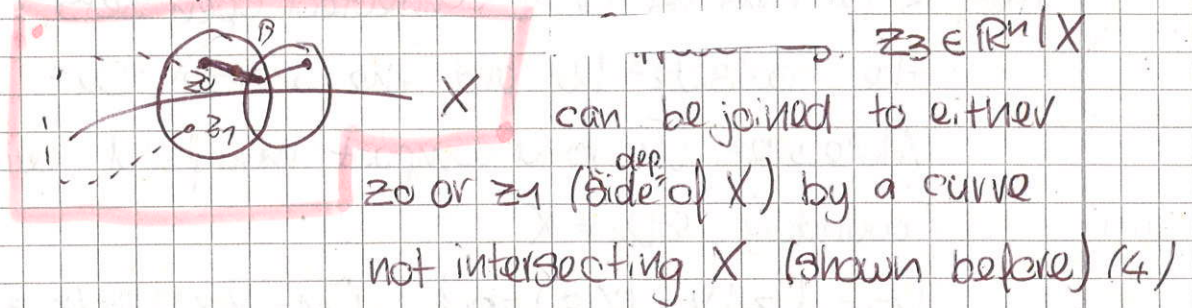 B
z0
z1
X
z3 ∈ ℝⁿ\X
can be joined to either
z0 or z1 (side of X) by a curve
dep.
not intersecting X (shown before) (4)